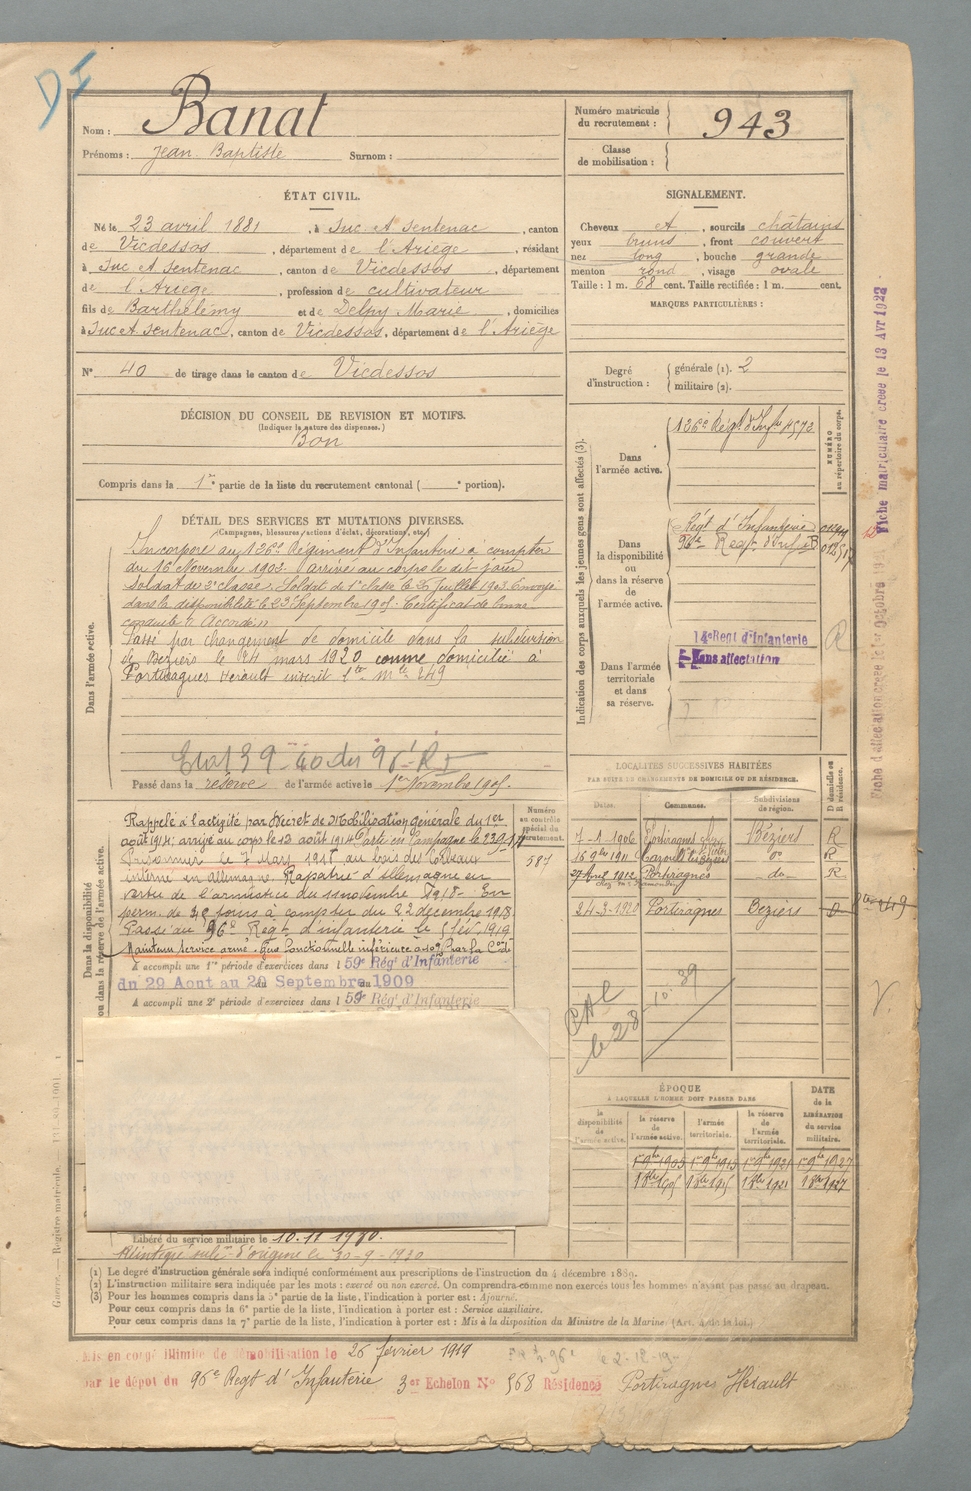 DI
Nom : Banat
Prénoms : Jean Baptiste Surnom :
Numéro matricule du recrutement : 943
Classe de mobilisation :
ÉTAT CIVIL.
Né le 23 avril 1881, à Suc et Sentenac, canton
de Vicdessos, département de l'Ariège, résidant
à Suc et Sentenac, canton de Vicdessos, département
de l'Ariège, profession de cultivateur
fils de Barthélémy et de Delpy Marie, domiciliés
à Suc et Sentenac, canton de Vicdessos, département de l'Ariège
N° 40 de tirage dans le canton de Vicdessos
SIGNALEMENT.
Cheveux et, sourcils châtains
yeux bruns, front couvert
nez long, bouche grande
menton rond, visage ovale
Taille : 1 m. 68 cent. Taille rectifiée : 1 m. cent.
MARQUES PARTICULIÈRES :
Degré d'instruction : générale (1). 2
militaire (2).
DÉCISION DU CONSEIL DE REVISION ET MOTIFS.
(Indiquer la nature des dispenses.)
Bon
Compris dans la 1re partie de la liste du recrutement cantonal ( e portion).
DÉTAIL DES SERVICES ET MUTATIONS DIVERSES.
(Campagnes, blessures, actions d'éclat, décorations, etc.)
Dans l'armée active.
Incorporé au 126e Régiment d'Infanterie à compter
du 16 Novembre 1903. arrivé au corps le dit jour
Soldat de 2e classe. Soldat de 1e classe le Juillet Envoyé
dans la disponibilité le 23 Septembre Certificat de bonne
conduite
Passé par changement de domicile dans la subdivision
de Béziers le 24 mars 1920 comme domicilié à
Portiragnes Hérault inscrit mle 249
Etat 39-40 du 96e RI
Passé dans la réserve de l'armée active le 1er Novembre
Indication des corps auxquels les jeunes gens sont affectés (3).
NUMÉRO au répertoire du corps.
Dans l'armée active.
126e Régt d'Infie 4572
Dans la disponibilité ou dans la réserve de l'armée active.
Régt d'Infanterie
96e Regt d'Inf
Dans l'armée territoriale et dans sa réserve.
14e Regt d'Infanterie
Sans affectation
R
Dans la disponibilité ou dans la réserve de l'armée active.
Numéro au contrôle spécial du recrutement.
587
Rappelé à l'activité par Décret de Mobilisation générale du 1er
août 1914; arrivé au corps le 12 août 1914
Prisonnier le 7 Mars au bois des Corbeaux
interné en allemagne. Rapatrié d'allemagne en
vertu de l'armistice du 11 novembre 1918. En
perm. de jours à compter du 22 décembre 1918.
Passé au 96e Regt d'infanterie le 1919
Maintenu Service armé. fonctionnelle inférieure à 10% par la
A accompli une 1re période d'exercices dans l 59e Rég. d'Infanterie
du 29 Aout au 20 Septembre 1909
A accompli une 2e période d'exercices dans l 59e Rég. d'Infanterie
LOCALITÉS SUCCESSIVES HABITÉES
PAR SUITE DE CHANGEMENTS DE DOMICILE OU DE RÉSIDENCE.
Dates. Communes. Subdivisions de région. D domicile ou R résidence.
7-1-1906 Portiragnes Béziers R
1911 Cazouls les Béziers do R
1912 Portiragnes do R
24-3-1920 Portiragnes Beziers D
ÉPOQUE
A LAQUELLE L'HOMME DOIT PASSER DANS
la disponibilité de l'armée active. la réserve de l'armée active. l'armée territoriale. la réserve de l'armée territoriale.
DATE de la LIBÉRATION du service militaire.
Libéré du service militaire le 10.11
Réintégré d'origine le 30-9-1930
(1) Le degré d'instruction générale sera indiqué conformément aux prescriptions de l'instruction du 4 décembre 1889.
(2) L'instruction militaire sera indiquée par les mots : exercé ou non exercé. On comprendra comme non exercés tous les hommes n'ayant pas passé au drapeau.
(3) Pour les hommes compris dans la 5e partie de la liste, l'indication à porter est : Ajourné.
Pour ceux compris dans la 6e partie de la liste, l'indication à porter est : Service auxiliaire.
Pour ceux compris dans la 7e partie de la liste, l'indication à porter est : Mis à la disposition du Ministre de la Marine. (Art. 4 de la loi.)
Mis en congé illimité de démobilisation le 26 février 1919
par le dépot du 96e Regt d'Infanterie 3er Echelon N° 568 Résidence Portiragnes Hérault
Fiche matriculaire créée le 13 Avr 1922